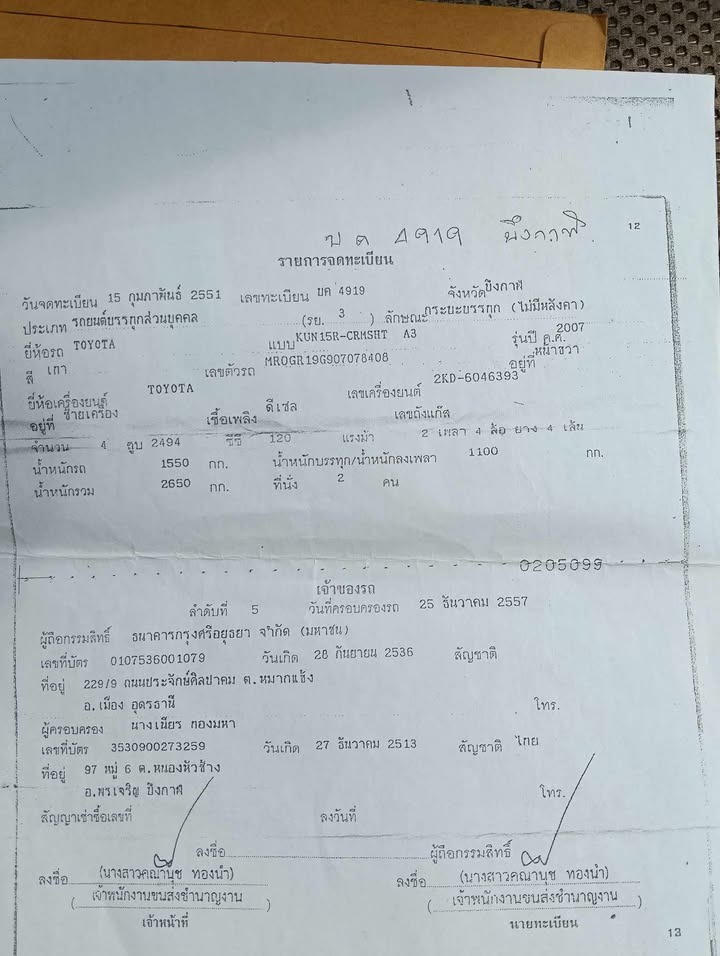 บค 4919 บึงกาฬ
12
รายการจดทะเบียน
วันจดทะเบียน 15 กุมภาพันธ์ 2551 เลขทะเบียน บค 4919 จังหวัดบึงกาฬ
ประเภท รถยนต์บรรทุกส่วนบุคคล (รย. 3 ) ลักษณะกระบะบรรทุก (ไม่มีหลังคา)
ยี่ห้อรถ TOYOTA แบบ KUN15R-CRMSHT A3 รุ่นปี ค.ศ. 2007
สี เทา เลขตัวรถ MR0GR19G907078408 อยู่ที่ หน้าขวา
ยี่ห้อเครื่องยนต์ TOYOTA เลขเครื่องยนต์ 2KD-6046393
อยู่ที่ ซ้ายเครื่อง เชื้อเพลิง ดีเซล เลขถังแก๊ส
จำนวน 4 สูบ 2494 ซีซี 120 แรงม้า 2 เพลา 4 ล้อ ยาง 4 เส้น
น้ำหนักรถ 1550 กก. น้ำหนักบรรทุก/น้ำหนักลงเพลา 1100 กก.
น้ำหนักรวม 2650 กก. ที่นั่ง 2 คน
0205099
เจ้าของรถ
ลำดับที่ 5 วันที่ครอบครองรถ 25 ธันวาคม 2557
ผู้ถือกรรมสิทธิ์ ธนาคารกรุงศรีอยุธยา จำกัด (มหาชน)
เลขที่บัตร 0107536001079 วันเกิด 28 กันยายน 2536 สัญชาติ
ที่อยู่ 229/9 ถนนประจักษ์ศิลปาคม ต.หมากแข้ง
อ.เมือง อุดรธานี โทร.
ผู้ครอบครอง นางเนียร ทองมหา
เลขที่บัตร 3530900273259 วันเกิด 27 ธันวาคม 2513 สัญชาติ ไทย
ที่อยู่ 97 หมู่ 6 ต.หนองหัวช้าง
อ.พรเจริญ บึงกาฬ โทร.
สัญญาเช่าซื้อเลขที่ ลงวันที่
ลงชื่อ ผู้ถือกรรมสิทธิ์
ลงชื่อ (นางสาวคณานุช ทองนำ) ลงชื่อ (นางสาวคณานุช ทองนำ)
(เจ้าพนักงานขนส่งชำนาญงาน) (เจ้าพนักงานขนส่งชำนาญงาน)
เจ้าหน้าที่ นายทะเบียน
13